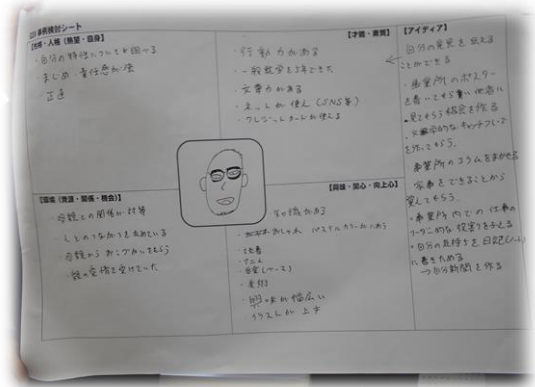 事例検討シート
【性格・人柄（熱望・自身）】
・自分の特性についてを調べる
・まじめ 責任感が強
・正直
【才能・素質】
行動力がある
・一般就労を3年できた
・文章力がある
・ネットが使え（SNS等）
・クレジットカードが使える
【アイディア】
自分の意見を伝える
ことができる
・事業所のポスター
を書いてもらう
見てもらう機会を作る
・文学的なキャッチフレーズ
を作ってもらう。
・事業所のコラムをまかせる
・家事をできることから
覚えてもらう。
・事業所内での仕事の
リーダー的な役割を与える
・自分の気持ちを日記（ノート）
に書きためる
→自分新聞を作る
【環境（資源・関係・機会）】
・母親との関係が対等
・人とのつながりを求めている
・母親からおこづかいをもらう
・親の愛情を受けていた
【興味・関心・向上心】
知識がある
おしゃれ パステルカラー
・読書
・アニメ
・音楽
・美術
・興味が幅広い
・イラストが上手